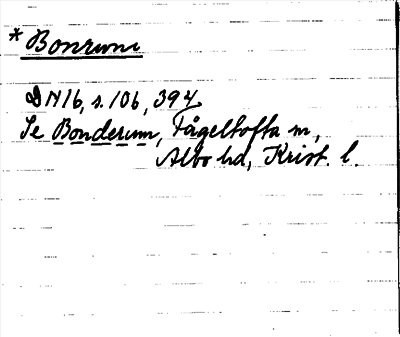 * Bonrum
DN 16, s. 106, 394
Se Bonderum, Fågeltofta sn,
Albo hd, Krist. l.